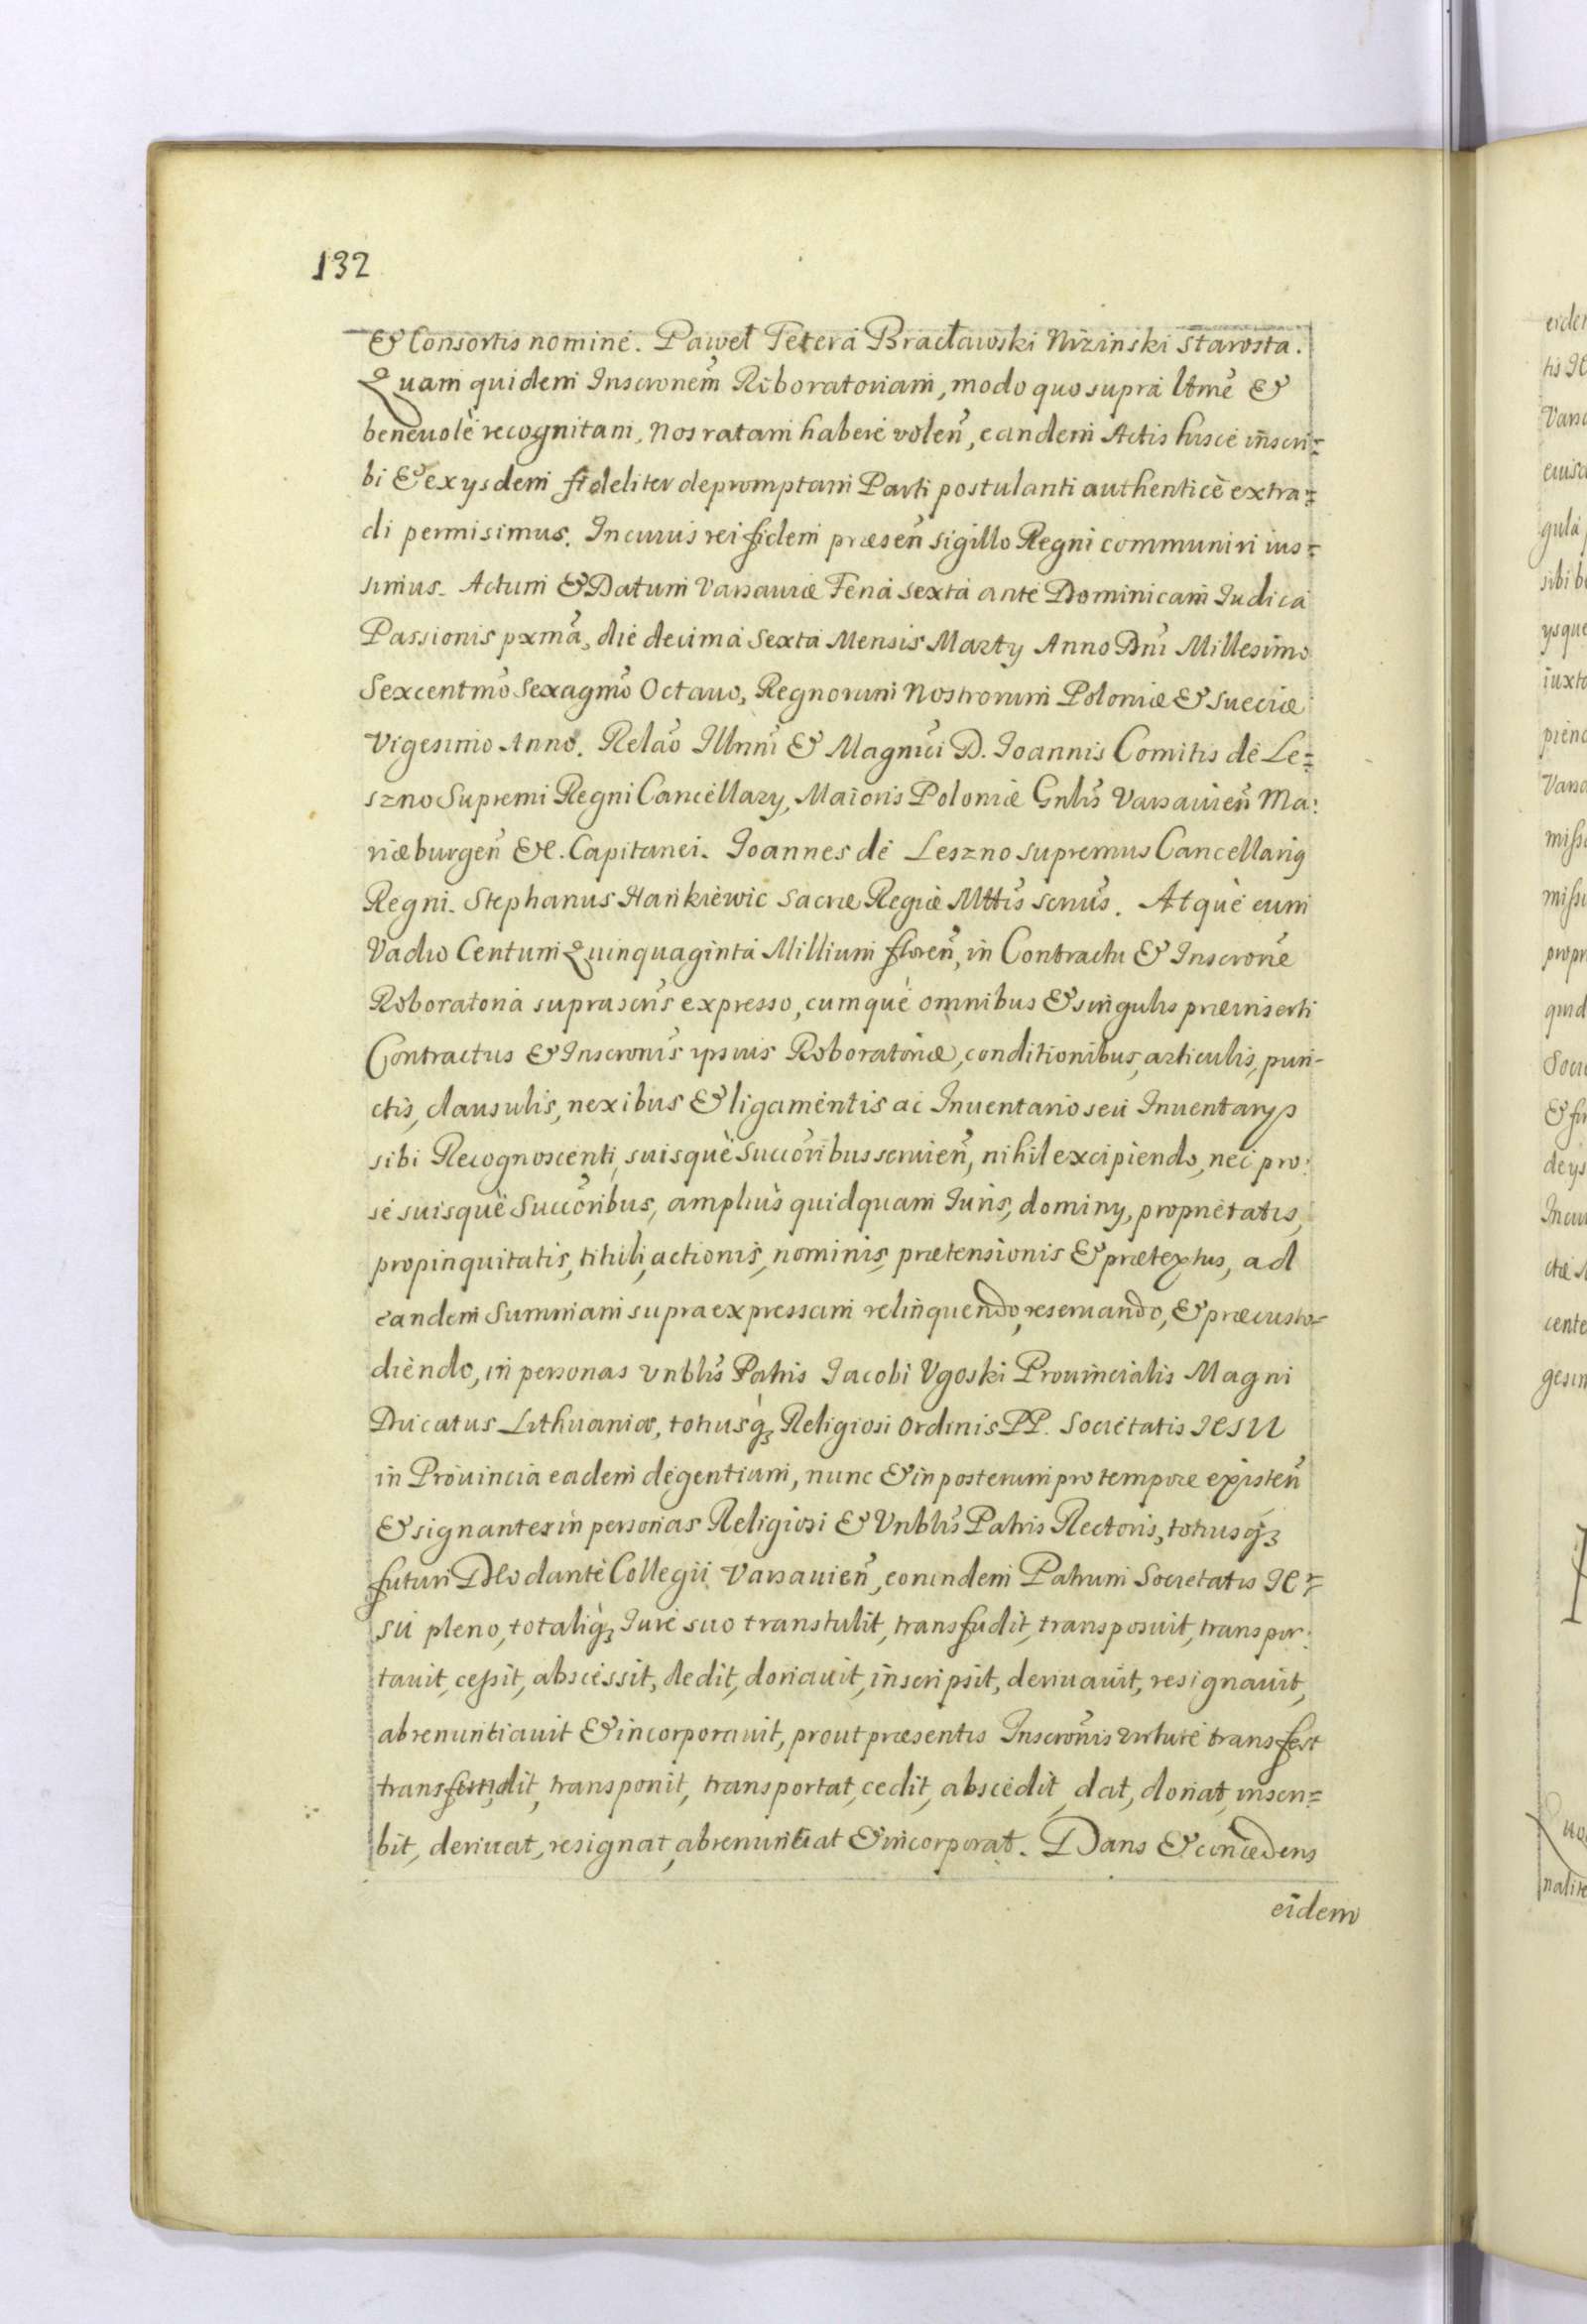 132
& Consortis nomine. Paweł Tetera Bracławski Nizinski Starosta.
Quam quidem Inscronem̃ Roboratoriam, modo quo supra ltme̊ &
beneuolè recognitam, Nos ratam habere volen̄, eandem Actis hisce inscri=
bi & ex ysdem fideliter depromptam Parti postulanti authenticè extra=
di permisimus. In cuius rei fidem præsen̄ Sigillo Regni communiri ius=
simus. Actum & Datum Varsauiæ Feria Sexta ante Dominicam Iudica
Passionis pxmā, die decima Sexta Mensis Marty Anno Dnī Millesimo
Sexcentmō Sexagmō Octauo, Regnorum Nostrorum Poloniæ & Sueciæ
Vigesimo Anno. Relaō Illmī & Magnīci D. Ioannis Comitis de Le=
szno Supremi Regni Cancellary, Maioris Poloniæ Gnlīs Varsauien̄ Ma:
riæburgen̄ &c. Capitanei. Ioannes de Leszno Supremus Cancellarig
Regni. Stephanus Hankiewic Sacræ Regiæ Mttīs Scrīus. Atquè cum
Vadio Centum Quinquaginta Millium floren̄, in Contractu & Inscronē
Roboratoria suprascrīs expresso, cumquè omnibus & singulis præinserti
Contractus & Inscronīs ipsius Roboratoriæ, conditionibus, articulis, pun-
ctis, clausulis, nexibus & ligamentis ac Inuentario seu Inuentarys
sibi Recognoscenti, suisquè Succōribus seruien̄, nihil excipiendo, nec pro:
se suisquè Succōribus, ampliùs quidquam Iuris, dominy, proprietatis,
propinquitatis, tituli, actionis, nominis, prætensionis & prætextus, ad
eandem Summam supra expressam relinquendo, reseruando, & præcusto=
diendo, in personas Vnblīs Patris Iacobi Vgoski Prouincialis Magni
Ducatus Lithuaniæ, totiusq̀ꝫ Religiosi Ordinis PP. Societatis IESU
in Prouincia eadem degentium, nunc & in posterum pro tempore existen̄
& signanter in personas Religiosi & Vnblīs Patris Rectoris, totiusqꝫ
futuri Deo dante Collegii Varsauien̄, eorundem Patrum Societatis IE=
SU pleno, totaliq̀ꝫ Iure suo transtulit, transfudit, transposuit, transpor:
tauit, cessit, abscessit, dedit, donauit, inscripsit, deriuauit, resignauit,
abrenuntiauit & incorporauit, prout præsentis Inscronīs virtute transfert
transfundit, transponit, transportat, cedit, abscedit, dat, donat, inscri=
bit, deriuat, resignat, abrenuntiat & incorporat. Dans & concedens
eidem